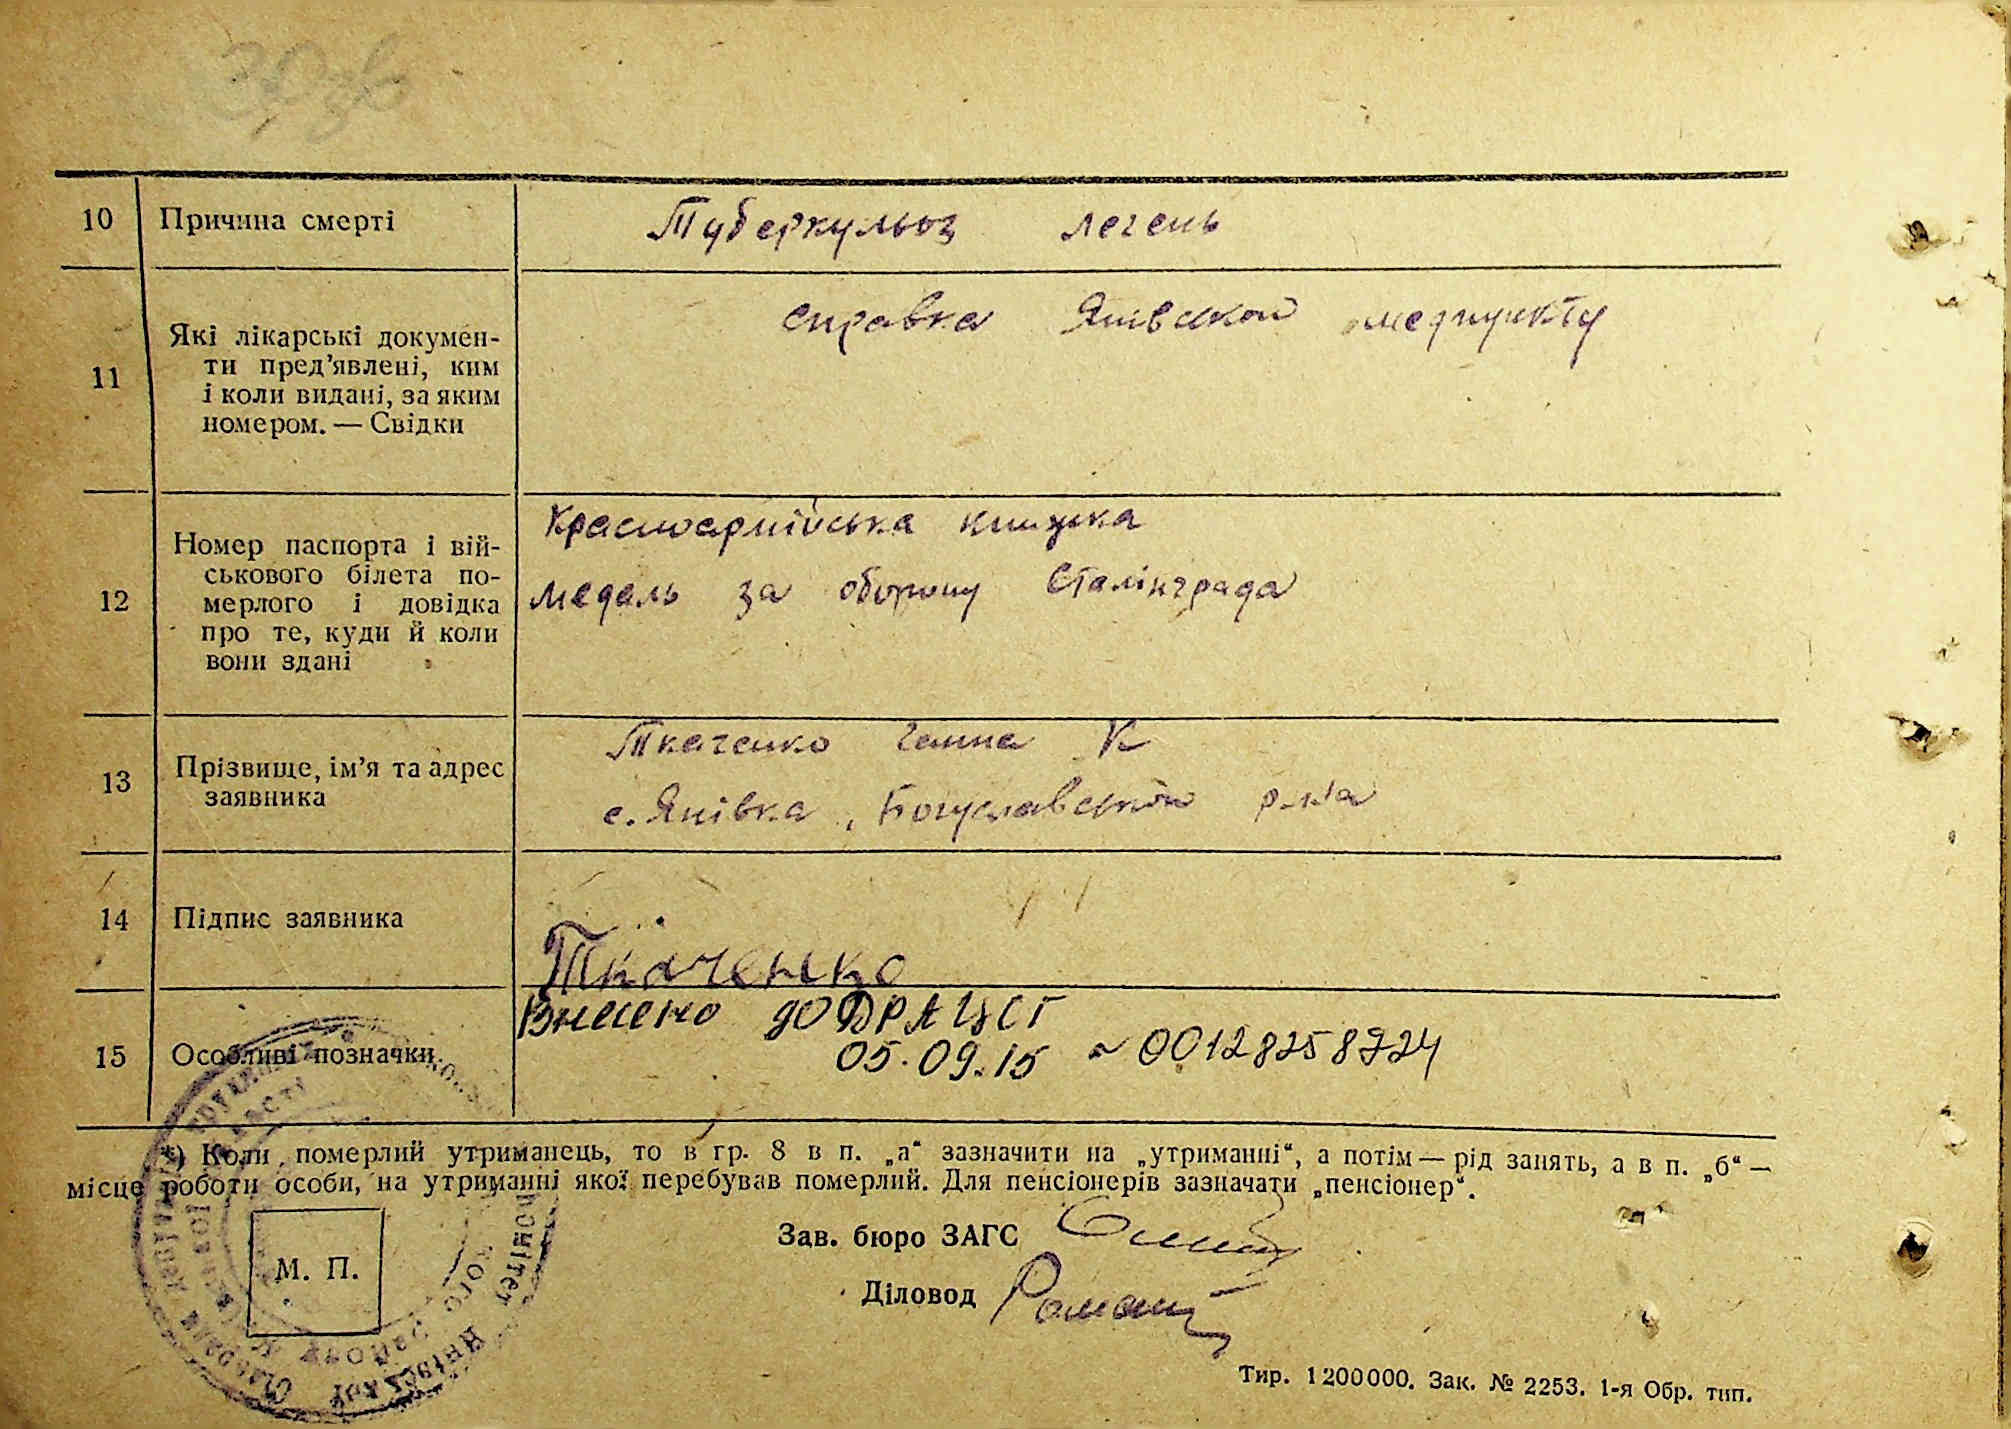 10 Причина смерті Туберкульоз легень
11 Які лікарські докумен-
ти пред'явлені, ким
і коли видані, за яким
номером. — Свідки
справка Янівскои медпункту
12 Номер паспорта і вій-
ськового білета по-
мерлого і довідка
про те, куди й коли
вони здані
Красноармійська книжка
медаль за оборону Сталінграда
13 Прізвище, ім'я та адрес
заявника
Ткаченко Ганна К
с. Янівка, Богуславської р-на
14 Підпис заявника Ткаченко
15 Особливі позначки
Внесено до ДРАЦСГ
05.09.15 00128258724
*) Коли померлий утриманець, то в гр. 8 в п. „а“ зазначити на „утриманні“, а потім — рід занять, а в п. „б“ —
місце роботи особи, на утриманні якої перебував померлий. Для пенсіонерів зазначати „пенсіонер“.
Зав. бюро ЗАГС
М. П.
Діловод
Тир. 1200000. Зак. № 2253. 1-я Обр. тип.